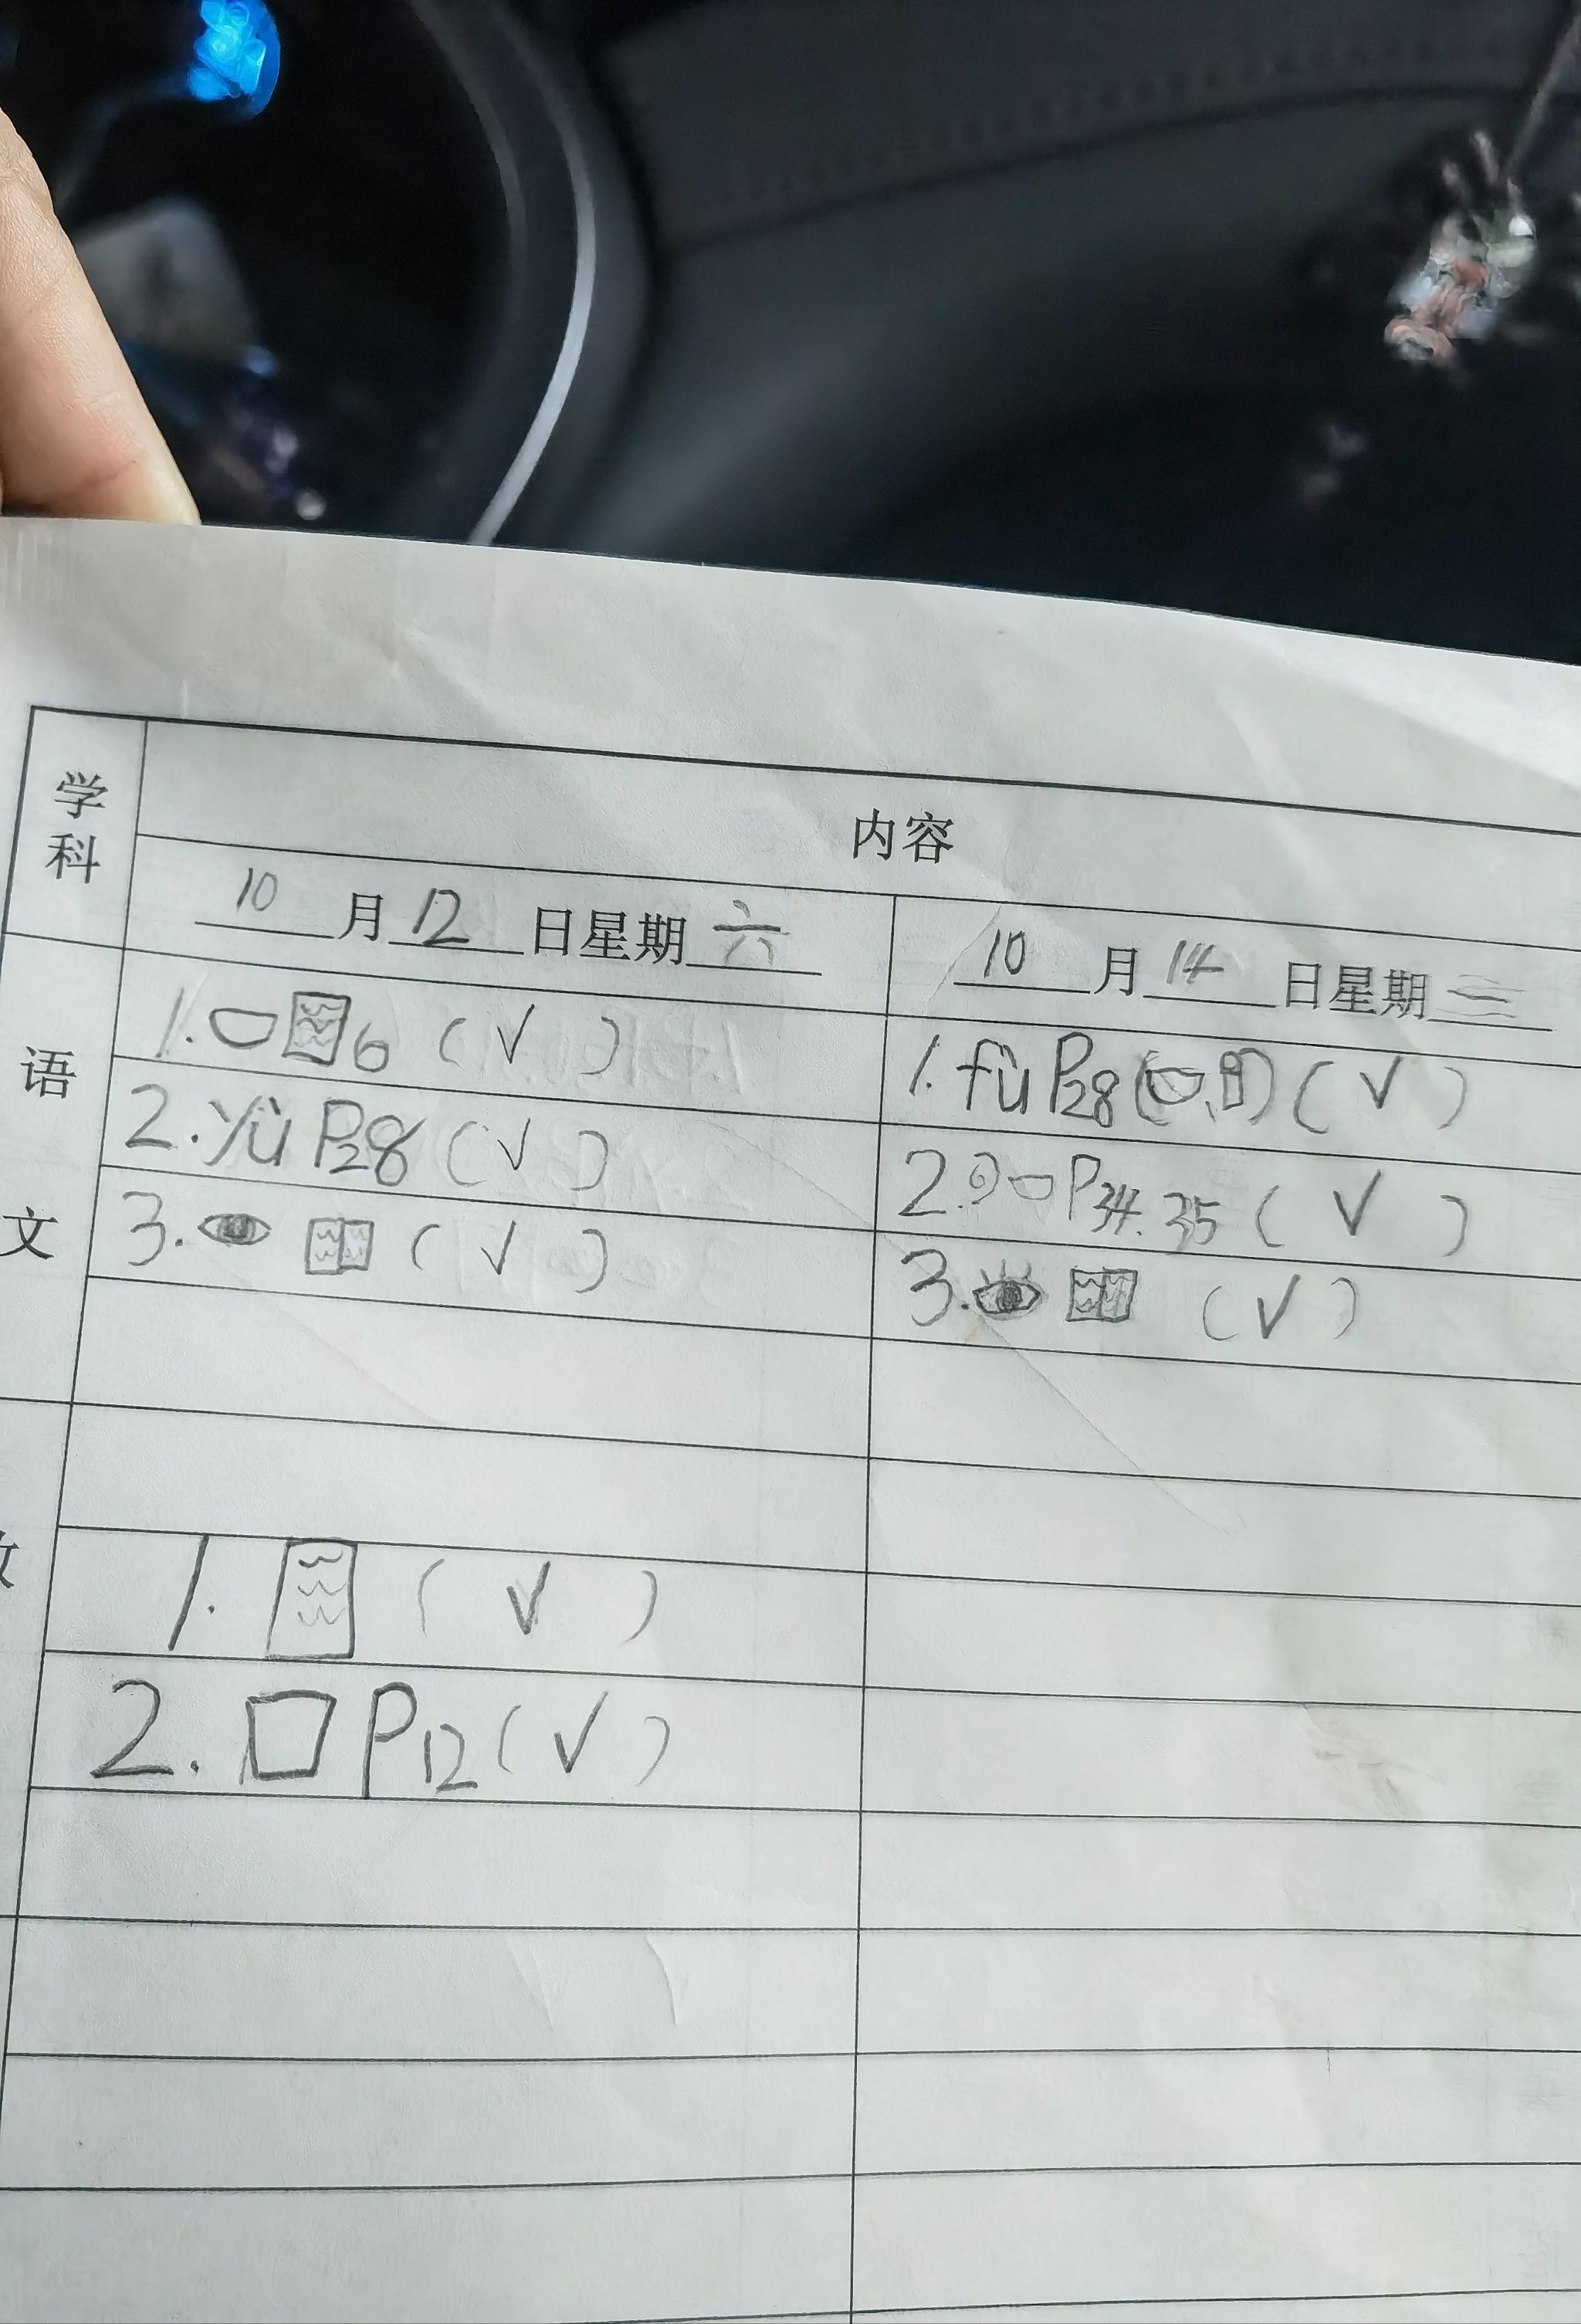 学科
内容
10月12日星期六
10月14日星期
语文
1. 6 (√)
2. yù P28 (√)
3. (√)
1. fù P28 ( 、 ) (√)
2. P34. 35 (√)
3. (√)
1. (√)
2. P12 (√)